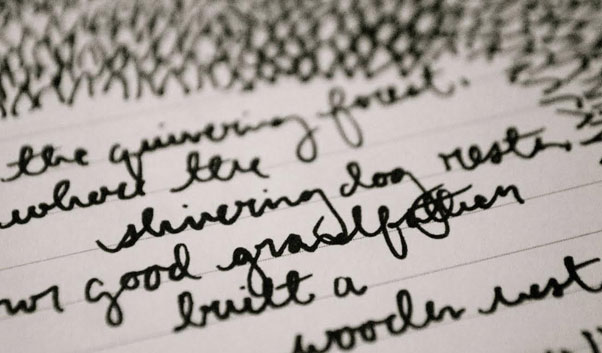 the quivering forest.
where the
shivering dog rests,
our good grandfather
built a
wooden nest